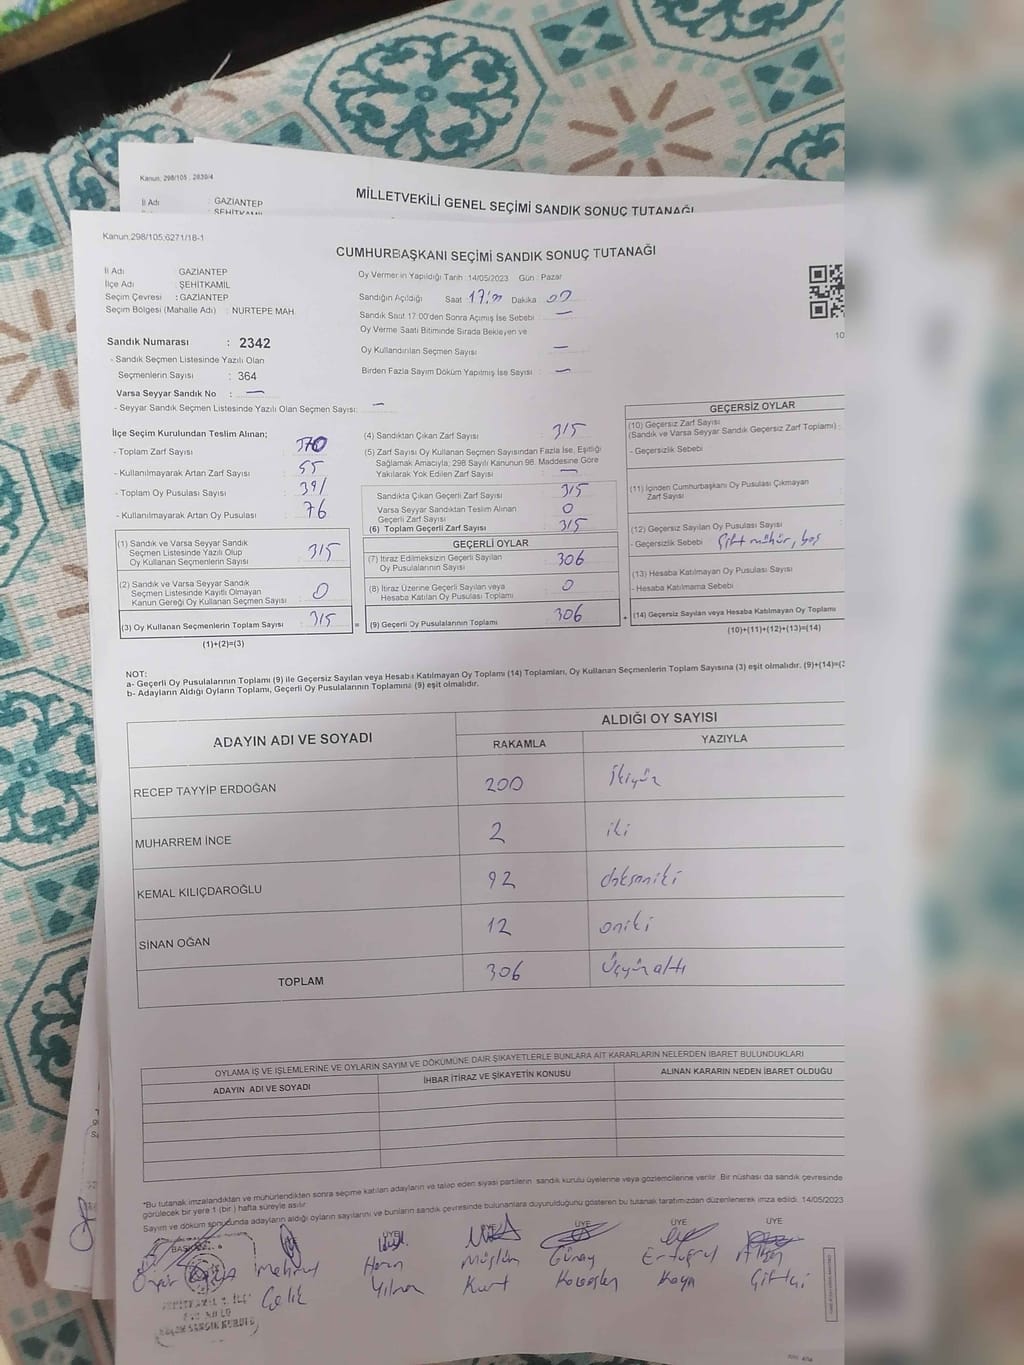 Kanun, 298/105 , 2839/4
MİLLETVEKİLİ GENEL SEÇİMİ SANDIK SONUÇ TUTANAĞI
İl Adı : GAZİANTEP
ŞEHİTKAMİL
Kanun,298/105;6271/18-1
CUMHURBAŞKANI SEÇİMİ SANDIK SONUÇ TUTANAĞI
İl Adı : GAZİANTEP
İlçe Adı : ŞEHİTKAMİL
Seçim Çevresi : GAZİANTEP
Seçim Bölgesi (Mahalle Adı) : NURTEPE MAH.
Oy Vermenin Yapıldığı Tarih : 14/05/2023 Gün : Pazar
Sandığın Açıldığı Saat 17:00 Dakika 00
Sandık Saat 17:00'den Sonra Açımış İse Sebebi : —
Oy Verme Saati Bitiminde Sırada Bekleyen ve
Oy Kullandırılan Seçmen Sayısı : —
Birden Fazla Sayım Döküm Yapılmış İse Sayısı : —
10
Sandık Numarası : 2342
- Sandık Seçmen Listesinde Yazılı Olan
Seçmenlerin Sayısı : 364
Varsa Seyyar Sandık No : —
- Seyyar Sandık Seçmen Listesinde Yazılı Olan Seçmen Sayısı: —
İlçe Seçim Kurulundan Teslim Alınan;
- Toplam Zarf Sayısı : 370
- Kullanılmayarak Artan Zarf Sayısı : 55
- Toplam Oy Pusulası Sayısı : 391
- Kullanılmayarak Artan Oy Pusulası : 76
(1) Sandık ve Varsa Seyyar Sandık
Seçmen Listesinde Yazılı Olup
Oy Kullanan Seçmen Sayısı : 315
(2) Sandık ve Varsa Seyyar Sandık
Seçmen Listesinde Kayıtlı Olmayan
Kanun Gereği Oy Kullanan Seçmen Sayısı : 0
(3) Oy Kullanan Seçmenlerin Toplam Sayısı : 315
(1)+(2)=(3)
(4) Sandıktan Çıkan Zarf Sayısı : 315
(5) Zarf Sayısı Oy Kullanan Seçmen Sayısından Fazla İse, Eşitliği
Sağlamak Amacıyla; 298 Sayılı Kanunun 98. Maddesine Göre
Yakılarak Yok Edilen Zarf Sayısı : —
Sandıkta Çıkan Geçerli Zarf Sayısı : 315
Varsa Seyyar Sandıktan Teslim Alınan
Geçerli Zarf Sayısı : 0
(6) Toplam Geçerli Zarf Sayısı : 315
GEÇERLİ OYLAR
(7) İtiraz Edilmeksizin Geçerli Sayılan
Oy Pusulalarının Sayısı : 306
(8) İtiraz Üzerine Geçerli Sayılan veya
Hesaba Katılan Oy Pusulası Toplamı : 0
= (9) Geçerli Oy Pusulalarının Toplamı : 306 +
GEÇERSİZ OYLAR
(10) Geçersiz Zarf Sayısı
(Sandık ve Varsa Seyyar Sandık Geçersiz Zarf Toplamı) :
- Geçersizlik Sebebi
(11) İçinden Cumhurbaşkanı Oy Pusulası Çıkmayan
Zarf Sayısı
(12) Geçersiz Sayılan Oy Pusulası Sayısı :
- Geçersizlik Sebebi : Çift mühür, boş
(13) Hesaba Katılmayan Oy Pusulası Sayısı
- Hesaba Katılmama Sebebi
(14) Geçersiz Sayılan veya Hesaba Katılmayan Oy Toplamı
(10)+(11)+(12)+(13)=(14)
NOT:
a- Geçerli Oy Pusulalarının Toplamı (9) ile Geçersiz Sayılan veya Hesaba Katılmayan Oy Toplamı (14) Toplamları, Oy Kullanan Seçmenlerin Toplam Sayısına (3) eşit olmalıdır. (9)+(14)=(3
b- Adayların Aldığı Oyların Toplamı, Geçerli Oy Pusulalarının Toplamına (9) eşit olmalıdır.
ADAYIN ADI VE SOYADI
ALDIĞI OY SAYISI
RAKAMLA YAZIYLA
RECEP TAYYİP ERDOĞAN 200 İkiyüz
MUHARREM İNCE 2 iki
KEMAL KILIÇDAROĞLU 92 doksaniki
SİNAN OĞAN 12 oniki
TOPLAM 306 Üçyüz altı
OYLAMA İŞ VE İŞLEMLERİNE VE OYLARIN SAYIM VE DÖKÜMÜNE DAİR ŞİKAYETLERLE BUNLARA AİT KARARLARIN NELERDEN İBARET BULUNDUKLARI
ADAYIN ADI VE SOYADI İHBAR İTİRAZ VE ŞİKAYETİN KONUSU ALINAN KARARIN NEDEN İBARET OLDUĞU
*Bu tutanak imzalandıktan ve mühürlendikten sonra seçime katılan adayların ve talep eden siyasi partilerin sandık kurulu üyelerine veya gözlemcilerine verilir. Bir nüshası da sandık çevresinde
görülecek bir yere 1 (bir ) hafta süreyle asılır.
Sayım ve döküm sonucunda adayların aldığı oyların sayılarını ve bunların sandık çevresinde bulunanlara duyurulduğunu gösteren bu tutanak tarafımızdan düzenlenerek imza edildi. 14/05/2023
BAŞKAN ÜYE ÜYE ÜYE ÜYE
Mehmet Harun Müslüm Günay Ertuğrul
Çelik Yılmaz Kurt Kaya Çiftçi
SANDIK KURULU